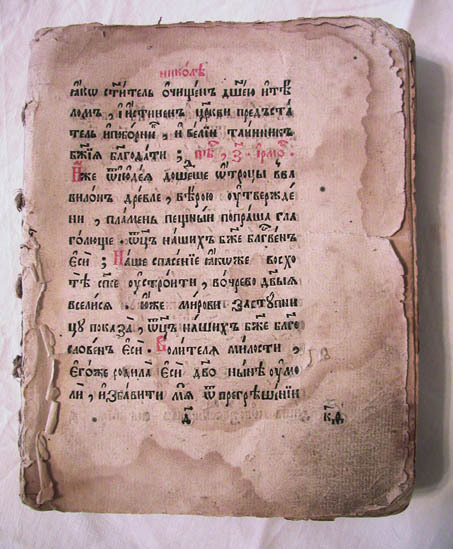 николѣ
ꙗкѡ ст҃итель ѡ҆чище́нъ дш҃е́ю и҆тѣ́
ломъ, і҆и҆́стиненъ цр҃кви предъста́
тель и҆побо́рни, и҆ ве́лїи таи́нникъ
бж҃їѧ благода́ти; пѣ҃, з҃. і҆рмо́.
И҆́же ѿі҆ꙋде́ѧ доше́дше ѻ҆́троцы ввa
вилѡ́нъ дре́вле, вѣ́рою ᲂу҆твержде́
ни, пла́мень пе́щныи попра́ша гла
го́люще. ѻ҆ц҃ъ на́шихъ бж҃е блг҃ве́нъ
є҆сѝ; На́ше спасе́нїе ꙗ҆́коже восхо
тѣ̀ сп҃се ᲂу҆стро́ити, во чре́во дв҃ыѧ
всели́сѧ. ю҆́же ми́рови засту́пни
цу показа̀, ѻ҆ц҃ъ на́шихъ бж҃е бл҃го
слове́нъ є҆сѝ. Воли́телѧ ми́лости,
є҆го́же роди́ла є҆сѝ дв҃о ны́нѣ ᲂу҆мо
лѝ, и҆зба́вити мѧ̀ ѿ прегрѣше́нїи
д҃ к҃д